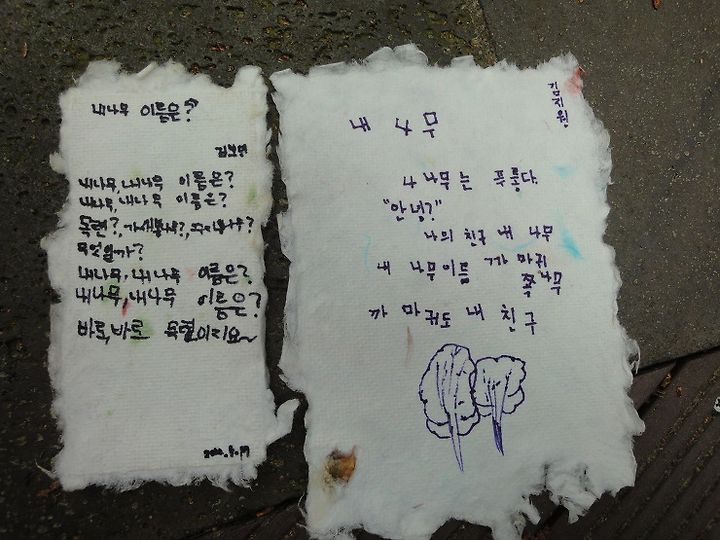 내나무 이름은?
내나무, 내나무 이름은?
내나무, 내나무 이름은?
목련?,
무엇일까?
내나무, 내나무 이름은?
내나무, 내나무 이름은?
바로, 바로 목련이지요~
김지원
내 나무
내 나무는 푸릏다.
"안녕?"
나의 친구 내 나무
내 나무이름 까마귀
쪽나무
까마귀도 내 친구